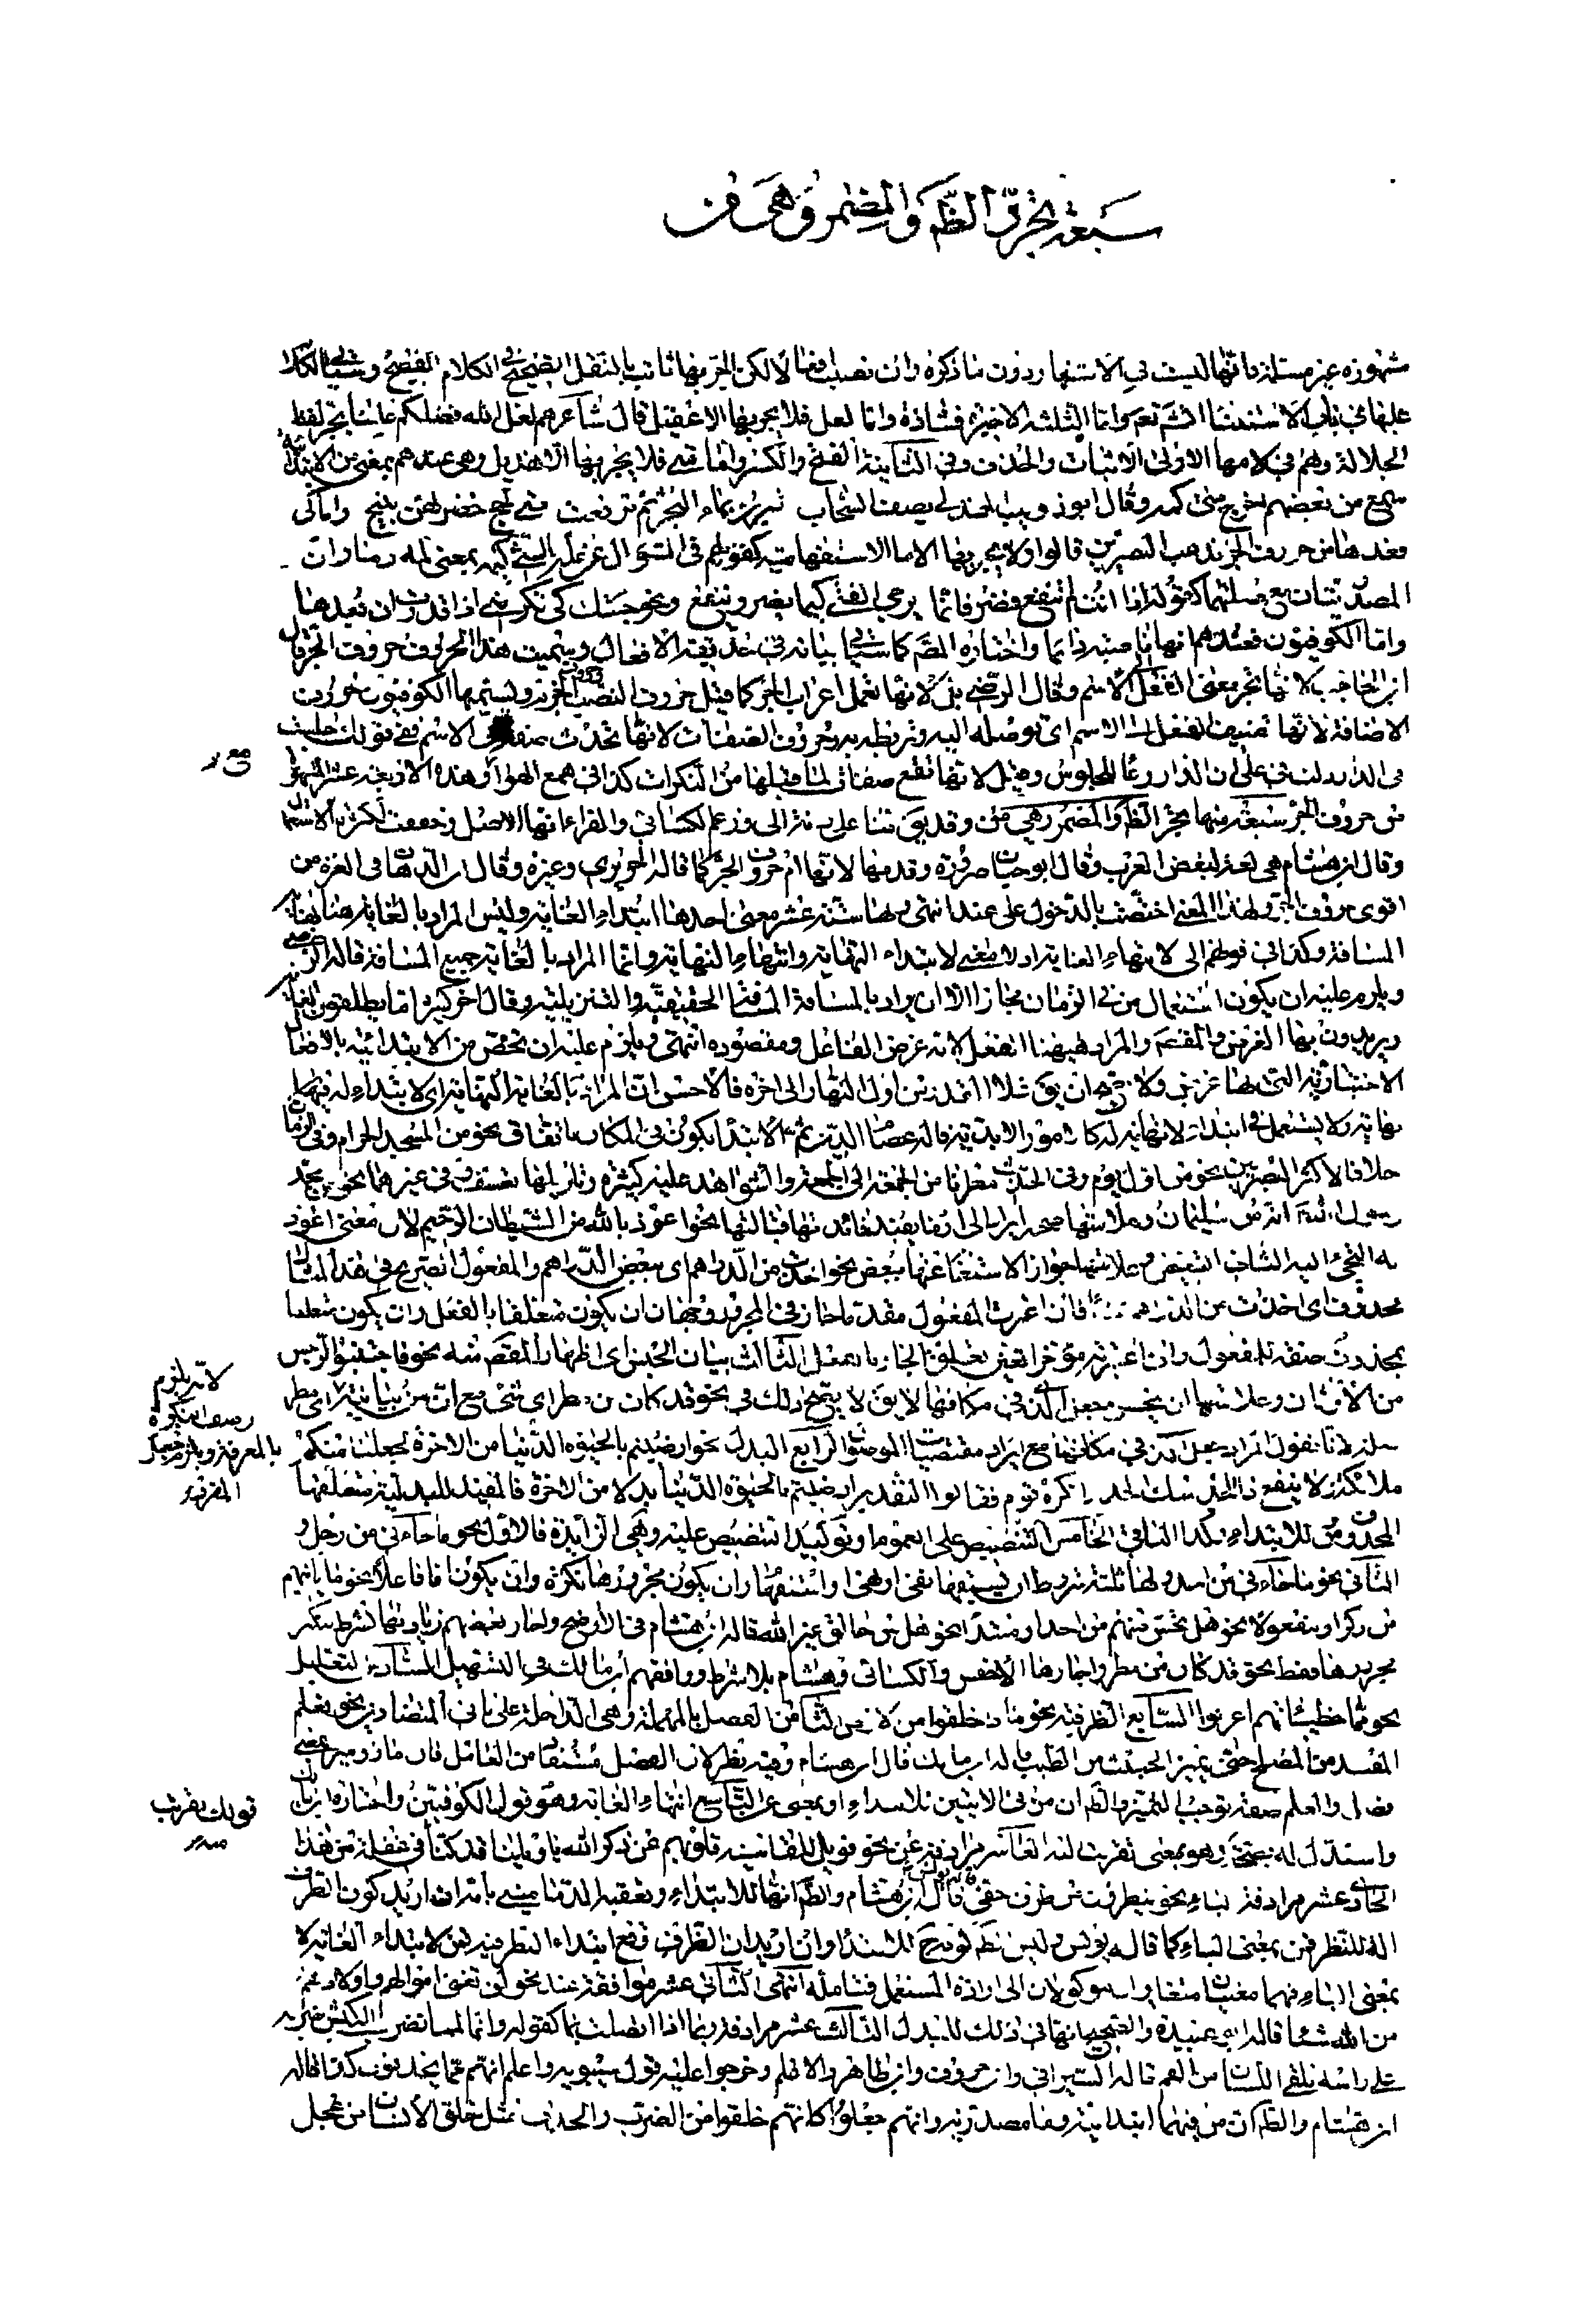 سبعة تجرّ الظّم والمضمر وهى من
مشهورة غير مسلمة فانها ليست فى الاشتهار بدون ما ذكره وان نصب لكن الجرّ بها ثابت بالنقل الصحيح فى الكلام الفصيح وسيأتى الكلام
عليها فى باب الاستثناء انشاء الله تعم واما الثلثة الاخيرة فشاذة واما لعل فلا يجر بها الا عقيل قال شاعرهم لعل الله فضلكم علينا بجر لفظ
الجلالة ولهم فى لامها الاولى الاثبات والحذف وفى الثانية الفتح والكسر واما متى فلا يجر بها الا هذيل وهى عندهم بمعنى من الابتدائية
سمع من بعضهم اخرج متى كمه وقال ابو ذويب الهذلى يصف السحاب شربن بماء البحر ثم ترفعت متى لجج خضر لهن نئيج واما كى
فعدها من حروف الجر مذهب البصريين قالوا ولا يجر بها الا ما الاستفهامية كقولهم فى السؤال عن علة الشئ كيمه بمعنى لمه وما وان
المصدريتان مع صلتهما كقوله اذا انت لم تنفع فضر فانما يرجى الفتى كيما يضر وينفع ونحو جئتك كى تكرمنى اذا قدرت ان بعدها
واما الكوفيون فعندهم انها ناصبة دائما واختاره المصّ كما سيأتى بيانه فى حديقة الافعال وسميت هذه الحروف حروف الجر قال
ابن الحاجب لانها تجر معنى الفعل الى الاسم وقال الرضى بل لانها تعمل اعراب الجر كما قيل حروف النصب وحروف الجزم ويسميها الكوفيون حروف
الاضافة لانها تضيف الفعل الى الاسم اى توصله اليه وتربطه به وحروف الصفات لانها تحدث صفة فى الاسم ففى قولك جلست
فى الدار دلت فى على ان الدار وعاء للجلوس وقيل لانها تقع صفات لما قبلها من النكرات كذا فى همع الهوامع وهذه الاربعة عشر المشهورة
من حروف الجر سبعة منها تجر الظم والمضمر وهى من وقد يقال منا على زنة الى وزعم الكسائى والفراء انها الاصل وخففت لكثرة الاستعمال
وقال ابن هشام هى لغة لبعض العرب وقال ابو حيان ضرورة وقدمها لانها ام حروف الجر كما قاله الحريرى وغيره وقال ابن الدهان فى الغرة من
اقوى حروف الجر ولهذا المعنى اختصت بالدخول على عند انتهى ولها ستة عشر معنى احدها ابتداء الغاية وليس المراد بالغاية هنا نهاية
المسافة وكذا فى قولهم الى لانتهاء الغاية اذ لا معنى لابتداء النهاية وانتهاء النهاية وانما المراد بالغاية جميع المسافة قاله الرضى
ويلزم عليه ان يكون استعمال من فى الزمان مجازا الا ان يراد بالمسافة المسافة الحقيقية والتنزيلية وقال آخر كثيرا ما يطلقون الغاية
ويريدون بها الغرض والمقصد والمراد ههنا الفعل لانه غرض الفاعل ومقصوده انتهى ويلزم عليه ان تختص من الابتدائية بالافعال
الاختيارية التى لها غرض ولا ان يق مثلا امتد من اول النهار الى اخره فالاحسن ان المراد بالغاية النهاية اى لابتداء له
نهاية ولا يستعمل فى ابتداء لا نهاية له كالامور الابدية قاله عصام الدين ثم الابتدأ يكون فى المكان باتفاق نحو من المسجد الحرام وفى الزمان
خلافا لاكثر البصريين نحو من اول يوم وفى الحديث مطرنا من الجمعة الى الجمعة والشواهد عليه كثيرة وتأويلها تعسف وفى غيرهما نحو من محمد
رسول الله انه من سليمان وعلامتها صحة ايراد الى او ما يفيد فائدتها فى مقابلتها نحو اعوذ بالله من الشيطان الرجيم لان معنى اعوذ
به التجئ اليه الثانى التبعيض وعلامتها جواز الاستغناء عنها ببعض نحو اخذت من الدراهم اى بعض الدراهم والمفعول الصريح فى هذا المثال
محذوف اى اخذت من الدراهم فان اخرت المفعول مقدما جاز فى المجرور وجهان ان يكون متعلقا بالفعل وان يكون متعلقا
بمحذوف صفة للمفعول واذا مؤخرا تعين تعلق الجار بالفعل الثالث بيان الجنس اى اظهار المقصود نحو فاجتنبوا الرجس
من الاوثان وعلامتها ان يحسن جعل الذى فى مكانها لا يق لا يصح ذلك فى نحو قد كان من مطر اى شئ مع ان من بيانية اى مطر
لانا نقول المراد جعل الذى فى مكانها مع ايراد مقتضيات الموصول الرابع البدل نحو ارضيتم بالحيوة الدنيا من الاخرة لجعلنا منكم
ملائكة ولا ينفع ذا الجد منك الجد وانكره قوم فقالوا التقدير ارضيتم بالحيوة الدنيا بدلا من الاخرة فالمفيد للبدلية متعلقها
المحذوف ومن للابتداء وكذا الباقى الخامس التنصيص على العموم او توكيد التنصيص عليه وهى الزايدة فالاول نحو ما جاءنى من رجل و
الثانى نحو ما جاءنى من احد ولها ثلثة شروط ان يسبقها نفى او نهى او استفهام وان يكون مجرورها نكرة وان يكون اما فاعلا نحو ما يأتيهم
من ذكر او مفعولا نحو هل تحس منهم من احد او مبتدأ نحو هل من خالق غير الله قاله ابن هشام فى الاوضح واجاز بعضهم زيادتها بشرط تنكير
مجرورها فقط نحو قد كان من مطر واجازها الاخفش والكسائى وهشام بلا شرط ووافقهم ابن مالك فى التسهيل السادس التعليل
نحو مما خطيئاتهم اغرقوا السابع الظرفية نحو ماذا خلقوا من الارض الثامن الفصل بالمهملة وهى الداخلة على ثانى المتضادين نحو يعلم
المفسد من المصلح حتى يميز الخبيث من الطيب قاله ابن مالك قال ابن هشام وفيه نظر لان الفصل مستفاد من العامل فان ماز وميز بمعنى
فصل والعلم صفة توجب التميز والظم ان من فى الايتين للابتداء او بمعنى عن التاسع انتهاء الغاية وهو قول الكوفيين واختاره ابن مالك
واستدل له بصحة وهو بمعنى تقربت اليه العاشر مرادفة عن نحو فويل للقاسية قلوبهم من ذكر الله يا ويلنا قد كنا فى غفلة من هذا
الحادى عشر مرادفة الباء نحو ينظرون من طرف خفى قاله يونس قال ابن هشام والظم انها للابتداء وتعقبه الدمامينى بانه ان اريد كون الطرف
الة للنظر فمن بمعنى الباء كما قاله يونس وليس نظم وان اريد ان الطرف وقع ابتداء النظر منه فمن لابتداء الغاية لا
بمعنى الباء فهما معنيان متغايران موكولان الى ارادة المستعمل فتأمله انتهى الثانى عشر موافقة عند نحو لن تغنى عنهم اموالهم ولا اولادهم
من الله شيئا قاله ابو عبيدة والصحيح انها فى ذلك للبدل الثالث عشر مرادفة ربما اذا اتصلت بما كقوله وانا لمما نضرب الكبش ضربة
على رأسه تلقى اللسان من الفم قاله السيرافى وابن خروف وابن طاهر والاعلم وخرجوا عليه قول سيبويه واعلم انهم مما يحذفون كذا قاله
ابن هشام والظم ان من فيهما ابتدائية وما مصدرية وانهم جعلوا كانهم خلقوا من الضرب والحذف مثل خلق الانسان من عجل
لانه يلزم
وصف النكرة
بالمعرفة
المعرفة
قولك يقرب
منه